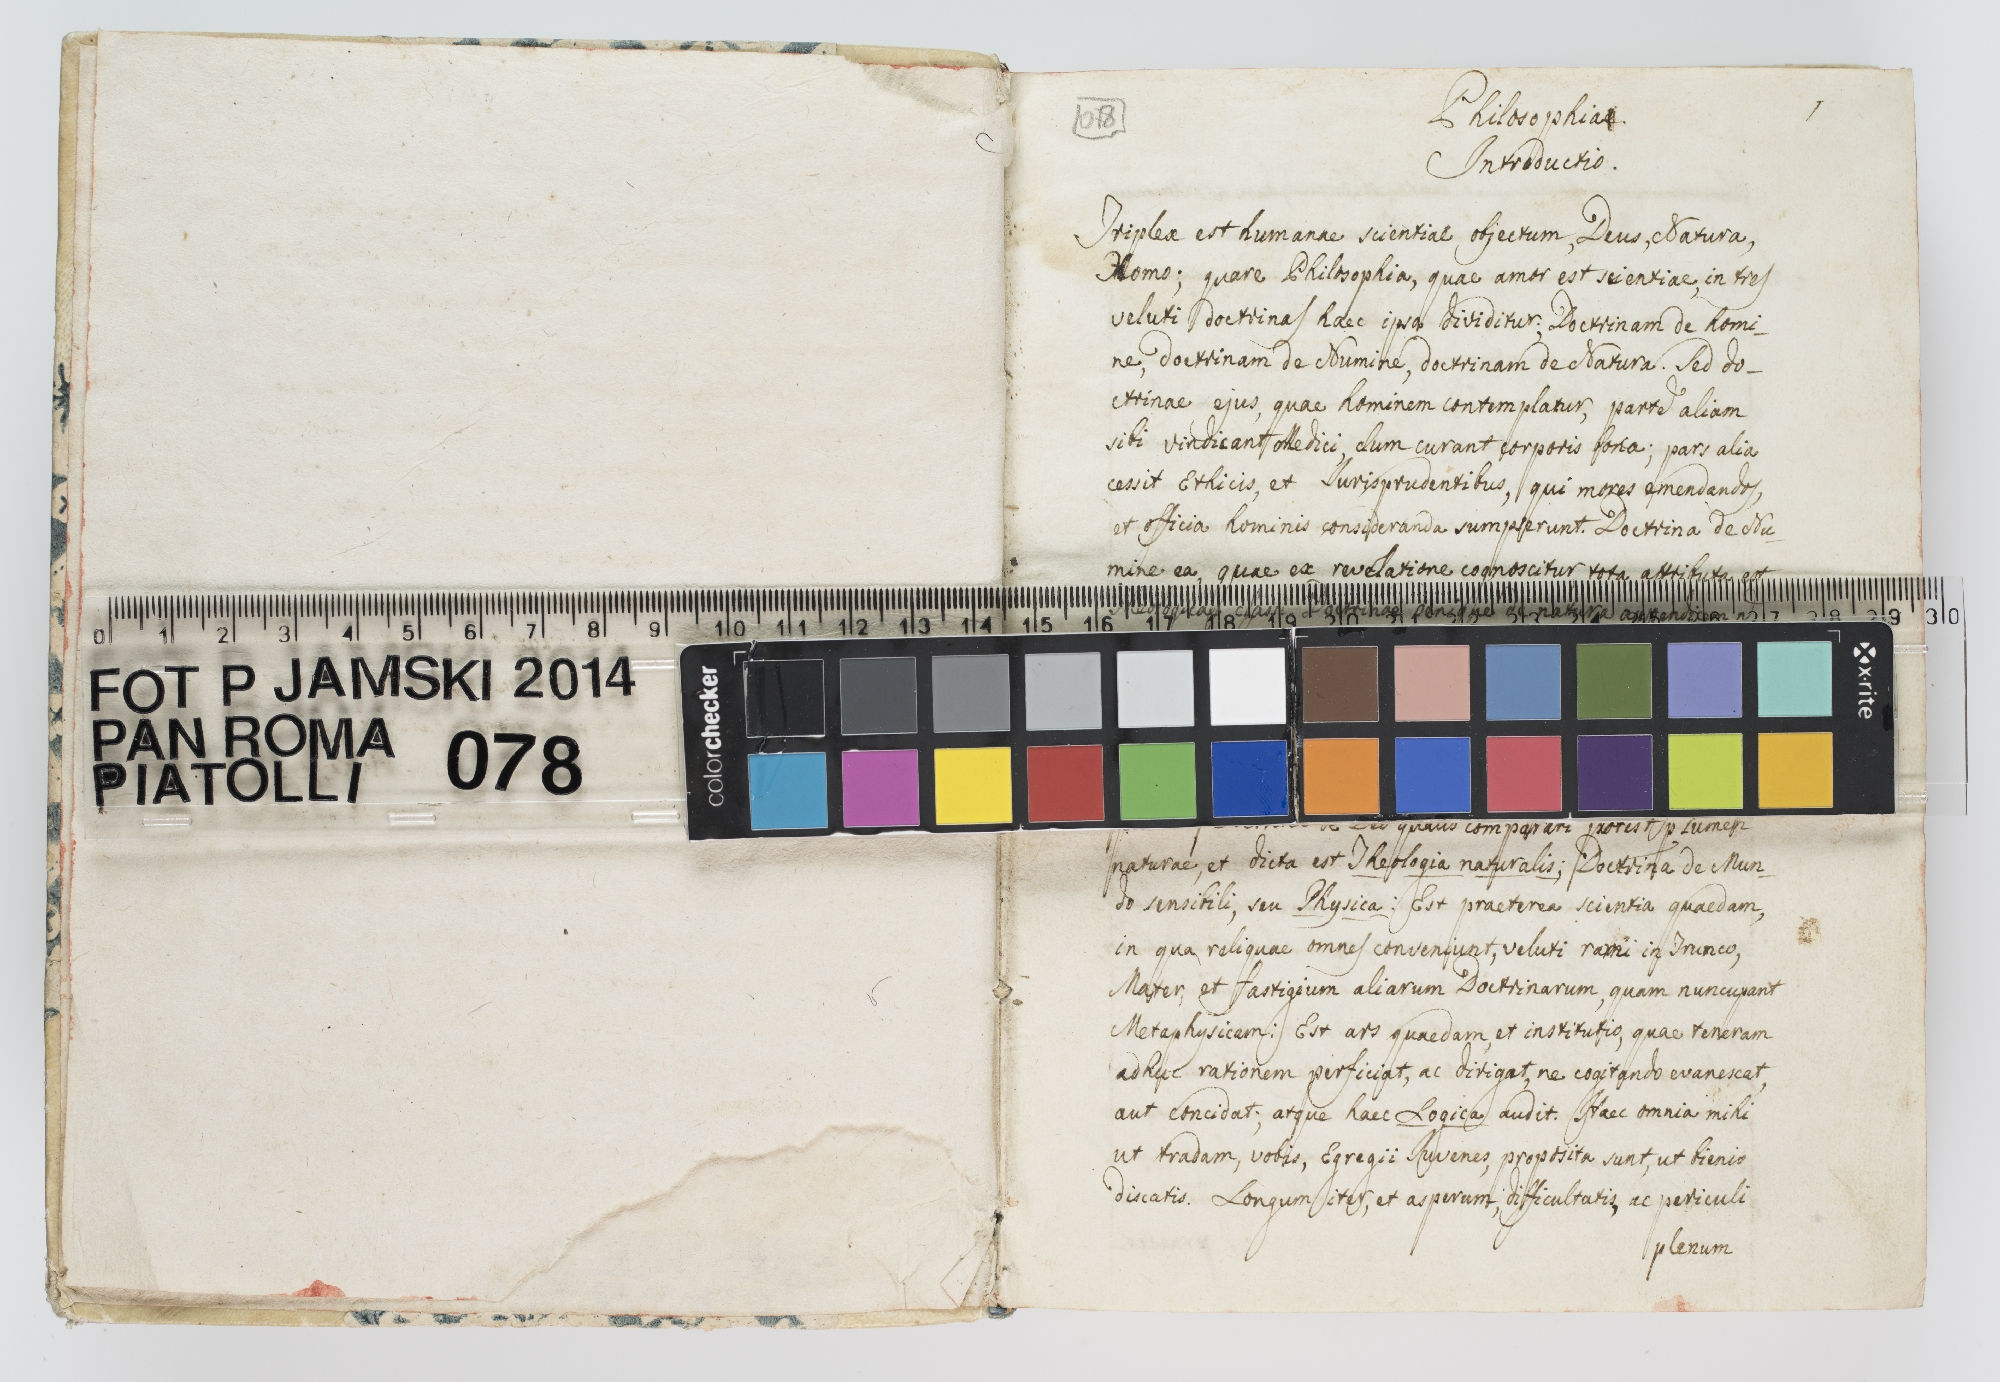 078
1
Philosophiae
Introductio.
Triplex est humanae scientiae objectum, Deus, Natura,
Homo; quare Philosophia, quae amor est scientiae, in tres
veluti doctrinas haec ipsa dividitur; Doctrinam de homi-
ne, doctrinam de Numine, doctrinam de Natura. Sed do-
ctrinae ejus, quae hominem contemplatur, parte aliam
sibi vindicant Medici, dum curant corporis bona; pars alia
cessit Ethicis, et Jurisprudentibus, qui mores emendandos,
et officia hominis consideranda sumpserunt. Doctrina de Nu-
mine ea, quae ex revelatione cognoscitur tota attributa est
Doctrinae denique de natura
0 1 2 3 4 5 6 7 8 9 10 11 12 13 14 15 16 17 18 19 20 21 22 23 24 25 26 27 28 29 30
FOT P JAMSKI 2014
PAN ROMA
PIATOLLI 078
colorchecker
x-rite
de Deo qualis comparari potest p lumen
naturae, et dicta est Theologia naturalis; Doctrina de Mun-
do sensibili, seu Physica: Est praeterea scientia quaedam,
in qua reliquae omnes conveniunt, veluti rami in Trunco,
Mater, et fastigium aliarum Doctrinarum, quam nuncupant
Metaphysicam: Est ars quaedam, et institutio, quae teneram
adhuc rationem perficiat, ac dirigat, ne cogitando evanescat,
aut concidat; atque haec Logica audit. Haec omnia mihi
ut tradam, vobis, Egregii Juvenes, proposita sunt, ut bienio
discatis. Longum iter, et asperum, difficultatis, ac periculi
plenum